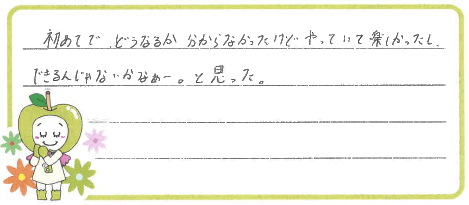 初めてで、どうなるか 分からなかったけど やっていて楽しかったし、
できるんじゃないかなぁー。と思った。